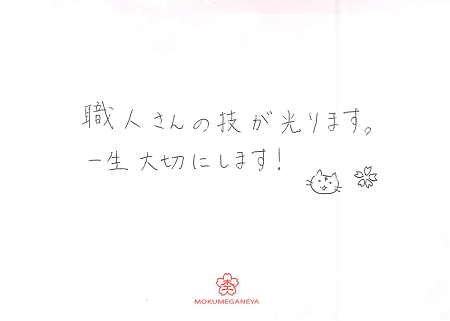 職人さんの技が光ります。
一生大切にします!
MOKUMEGANEYA